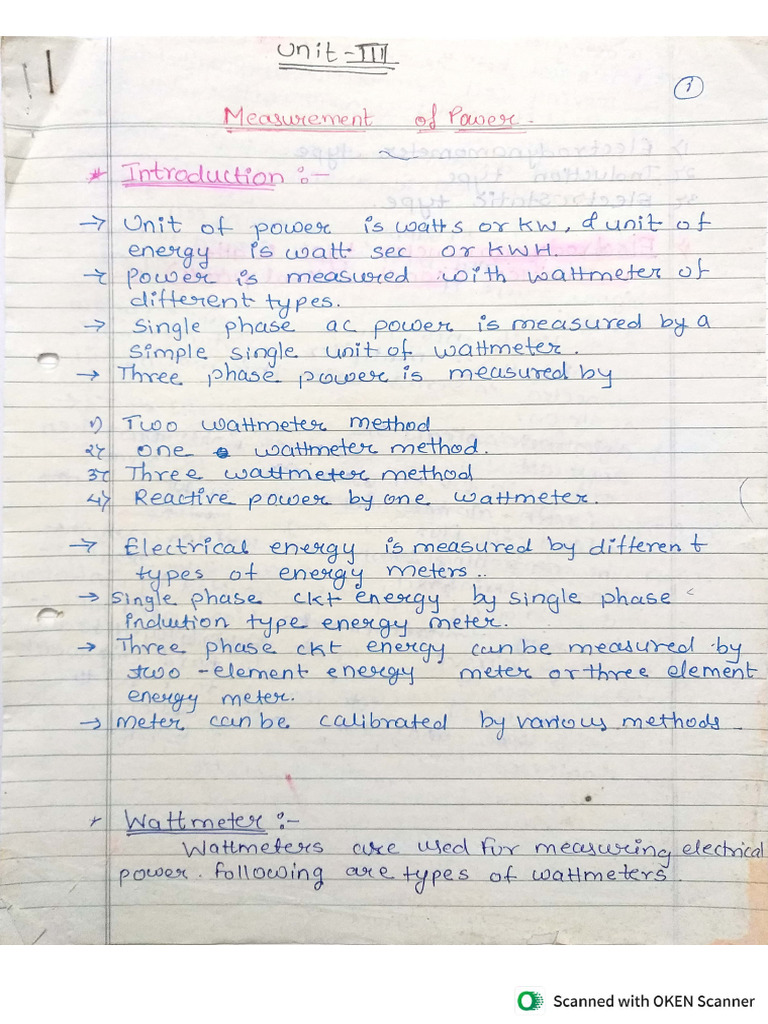 Unit-III
1
Measurement of Power.
* Introduction :-
→ Unit of power is watts or KW, & unit of
energy is watt sec or KWH.
→ Power is measured with wattmeter of
different types.
→ Single phase ac power is measured by a
simple single unit of wattmeter.
→ Three phase power is measured by
1) Two wattmeter method
2) one wattmeter method.
3) Three wattmeter method
4) Reactive power by one wattmeter.
→ Electrical energy is measured by different
types of energy meters..
→ Single phase ckt energy by single phase
indution type energy meter.
→ Three phase ckt energy can be measured by
two-element energy meter or three element
energy meter.
→ meter can be calibrated by various methods
* Wattmeter :-
Wattmeters are used for measuring electrical
power. following are types of wattmeters.
Scanned with OKEN Scanner